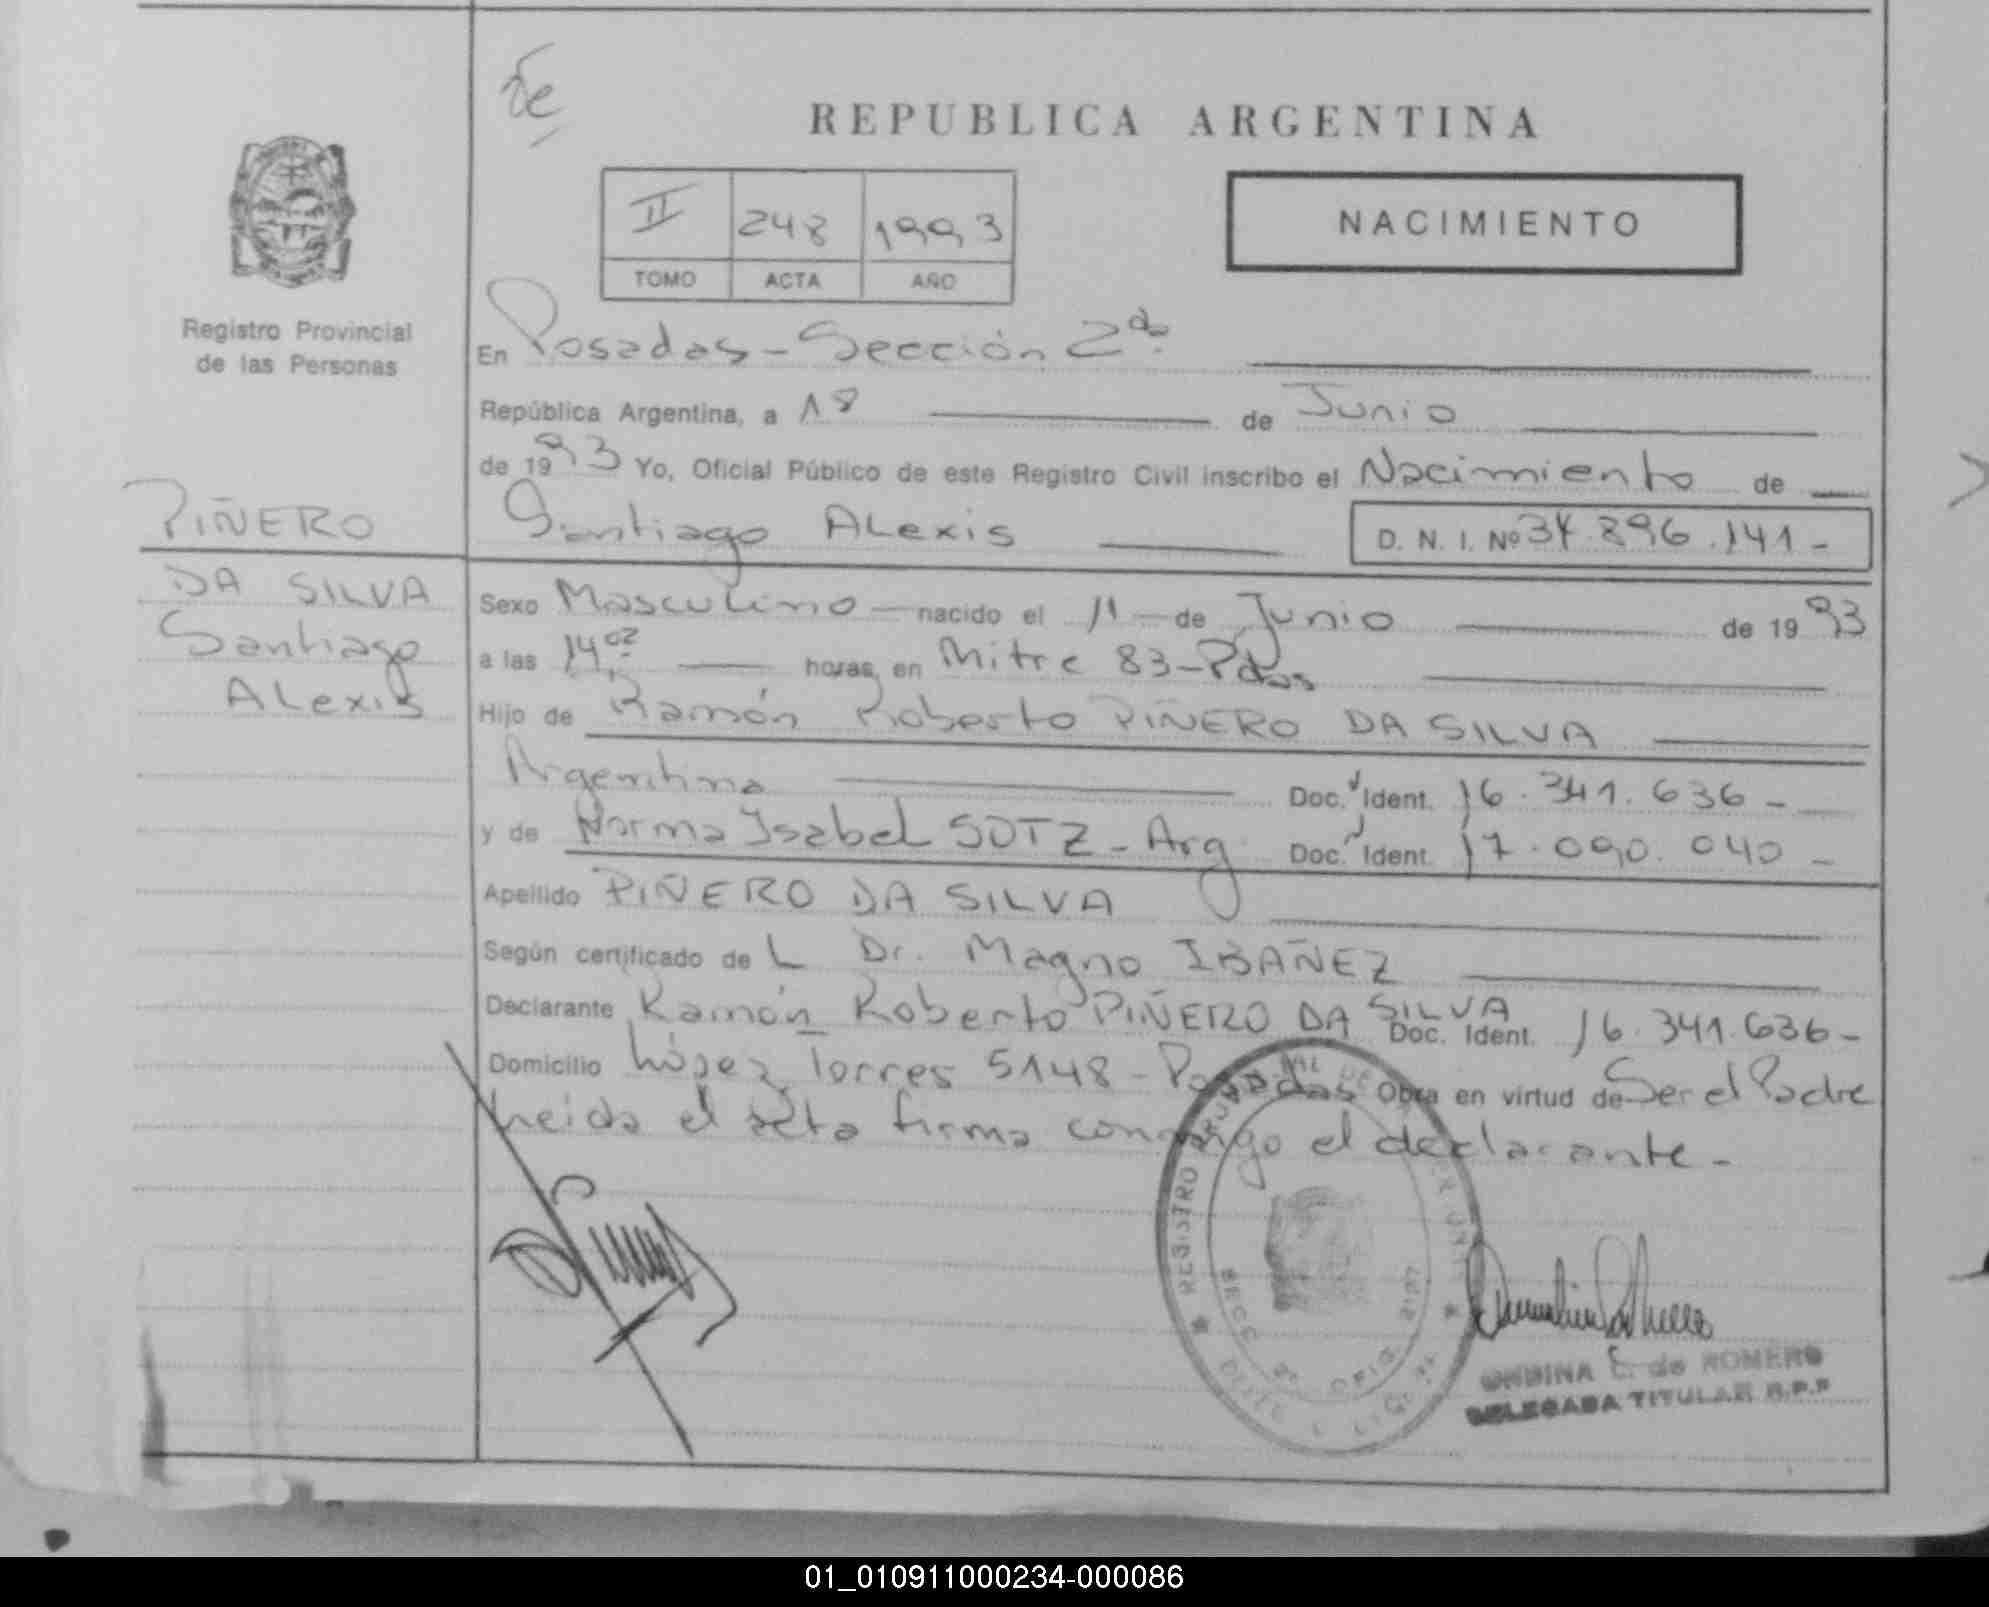 REPUBLICA ARGENTINA
II 248 1993
TOMO ACTA AÑO
NACIMIENTO
Registro Provincial
de las Personas
En Posadas - Sección 2da
República Argentina, a 18 de Junio
de 1993 Yo, Oficial Público de este Registro Civil inscribo el Nacimiento de
Santiago ALexis D. N. I. Nº 37.896.141-
PIÑERO
DA SILVA
Santiago
ALexis
Sexo Masculino nacido el 11 de Junio de 1993
a las 14 horas, en Mitre 83 - Pdas
Hijo de Ramón Roberto PIÑERO DA SILVA
Argentina Doc. Ident. 16.341.636-
y de Norma Isabel SOTZ - Arg Doc. Ident. 17.090.040-
Apellido PIÑERO DA SILVA
Según certificado de L Dr. Magno IBAÑEZ
Declarante Ramón Roberto PIÑERO DA SILVA Doc. Ident. 16.341.636-
Domicilio López Torres 5148 - Posadas Obra en virtud de Ser el Padre
Leida el acta firma conmigo el declarante -
REGISTRO
E. de ROMERO
DELEGADA TITULAR R.P.P
01_010911000234-000086